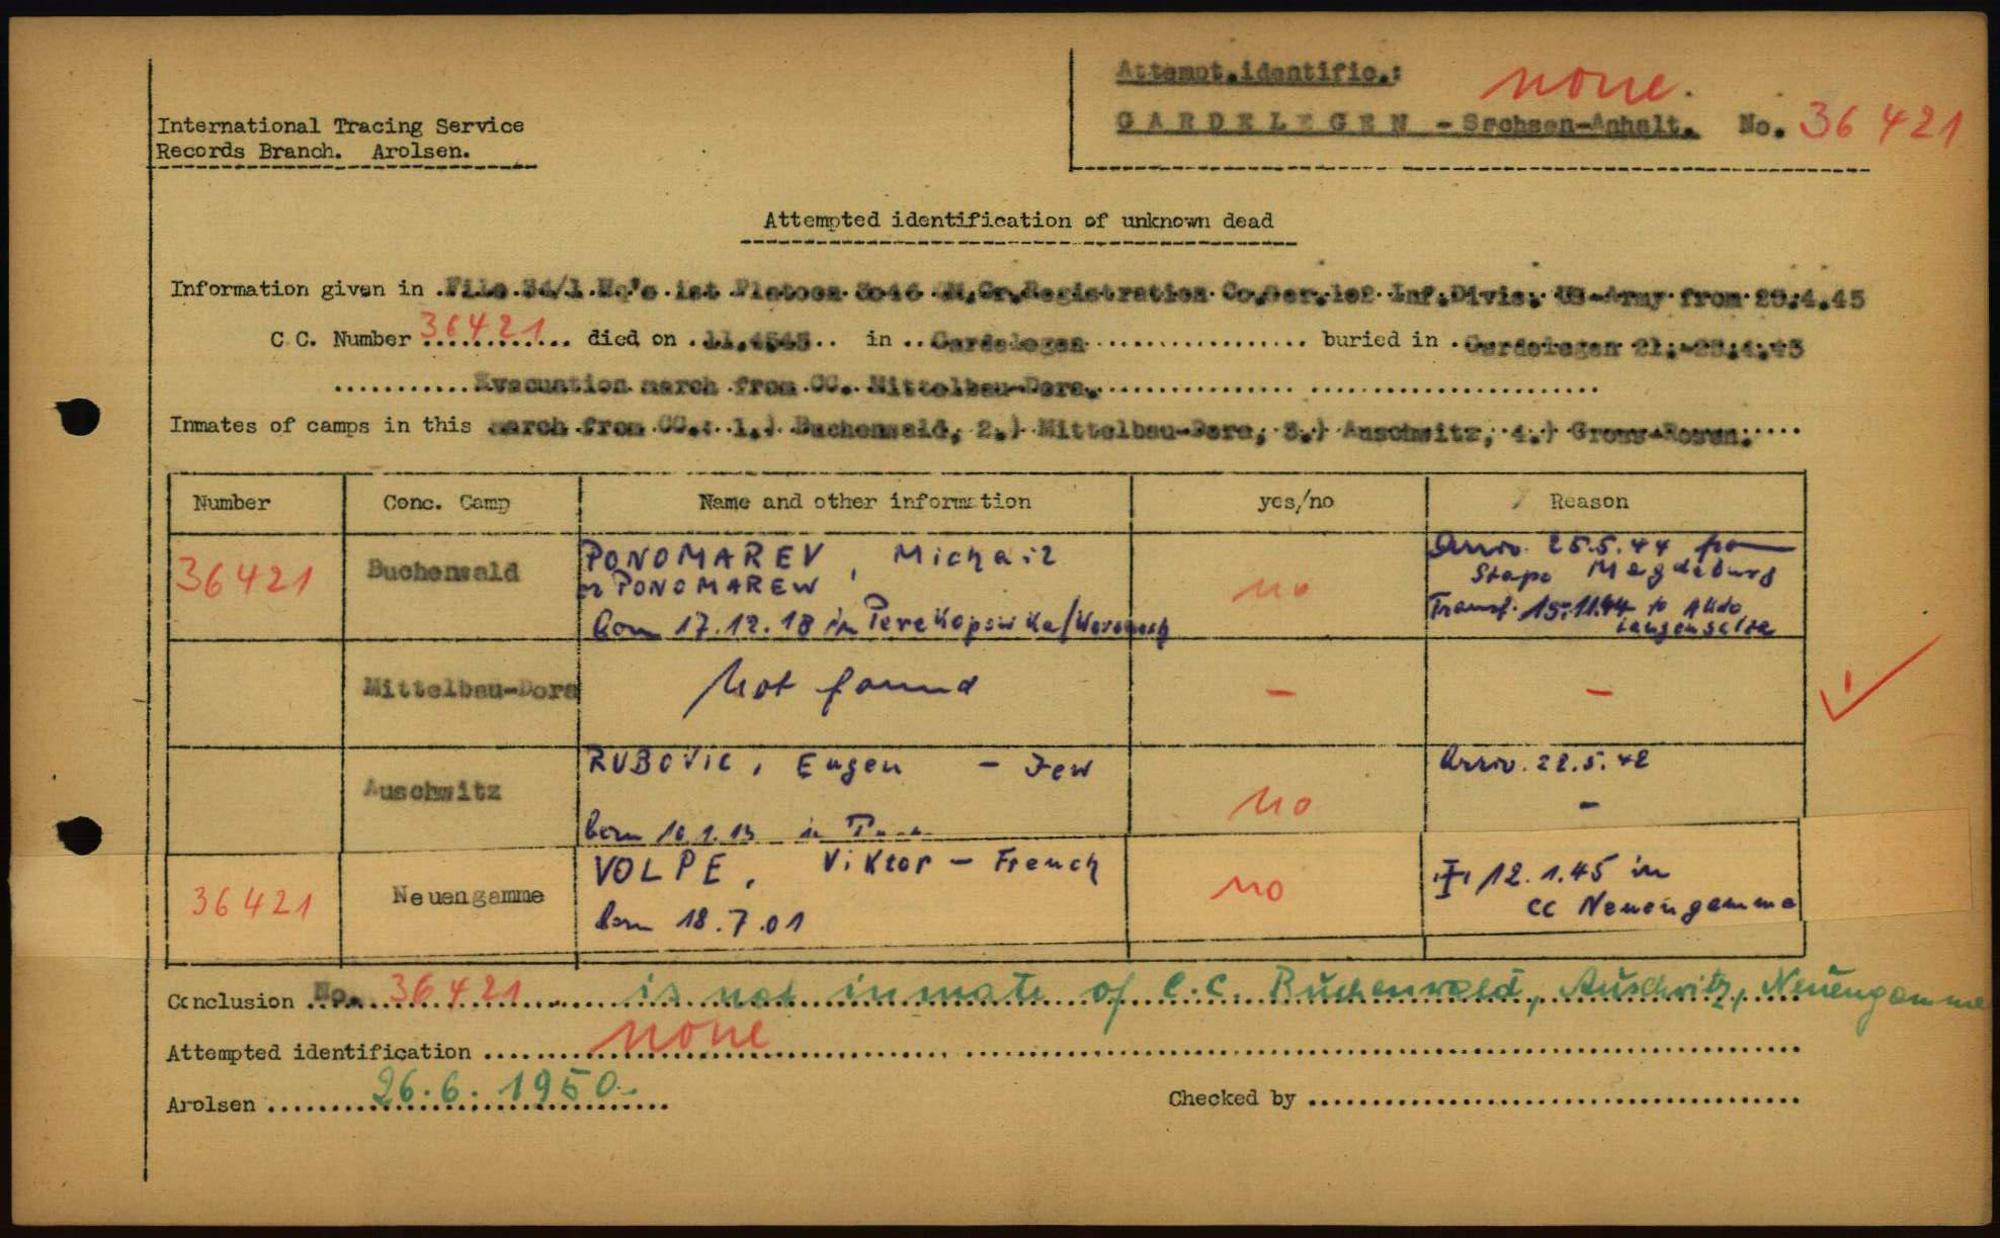 Attempt.identific.: none.
International Tracing Service
GARDELEGEN - Sachsen-Anhalt. No. 36 421
Records Branch. Arolsen.
Attempted identification of unknown dead
Information given in File 34/1 Hq's 1st Platoon 3046 QM.Gr.Registration Co. 102 Inf.Divis. US-Army from 28.4.45
C C. Number 36421 died on in Gardelegen buried in Gardelegen
Evacuation march from CC. Mittelbau-Dora.
Inmates of camps in this march from CC.: 1.) Buchenwald, 2.) Mittelbau-Dora, 3.) Auschwitz, 4.) Gross-Rosen.
Number Conc. Camp Name and other information yes/no Reason
36421 Buchenwald PONOMAREV, Michail no Arriv. 25.5.44 from
or PONOMAREW Stapo Magdeburg
born 17.12.18 in Perekopowka/Woronesh Transf. 15.11.44 to Akdo
Langensalza
Mittelbau-Dora Not found - -
Auschwitz RUBOVIC, Eugen - Jew no Arriv. 22.5.42
born in -
36421 Neuengamme VOLPE, Viktor - French no 12.1.45 in
born 18.7.01 CC Neuengamme
Conclusion No. 36421 is not inmate of C.C. Buchenwald, Auschwitz, Neuengamme
Attempted identification none
Arolsen 26.6.1950. Checked by